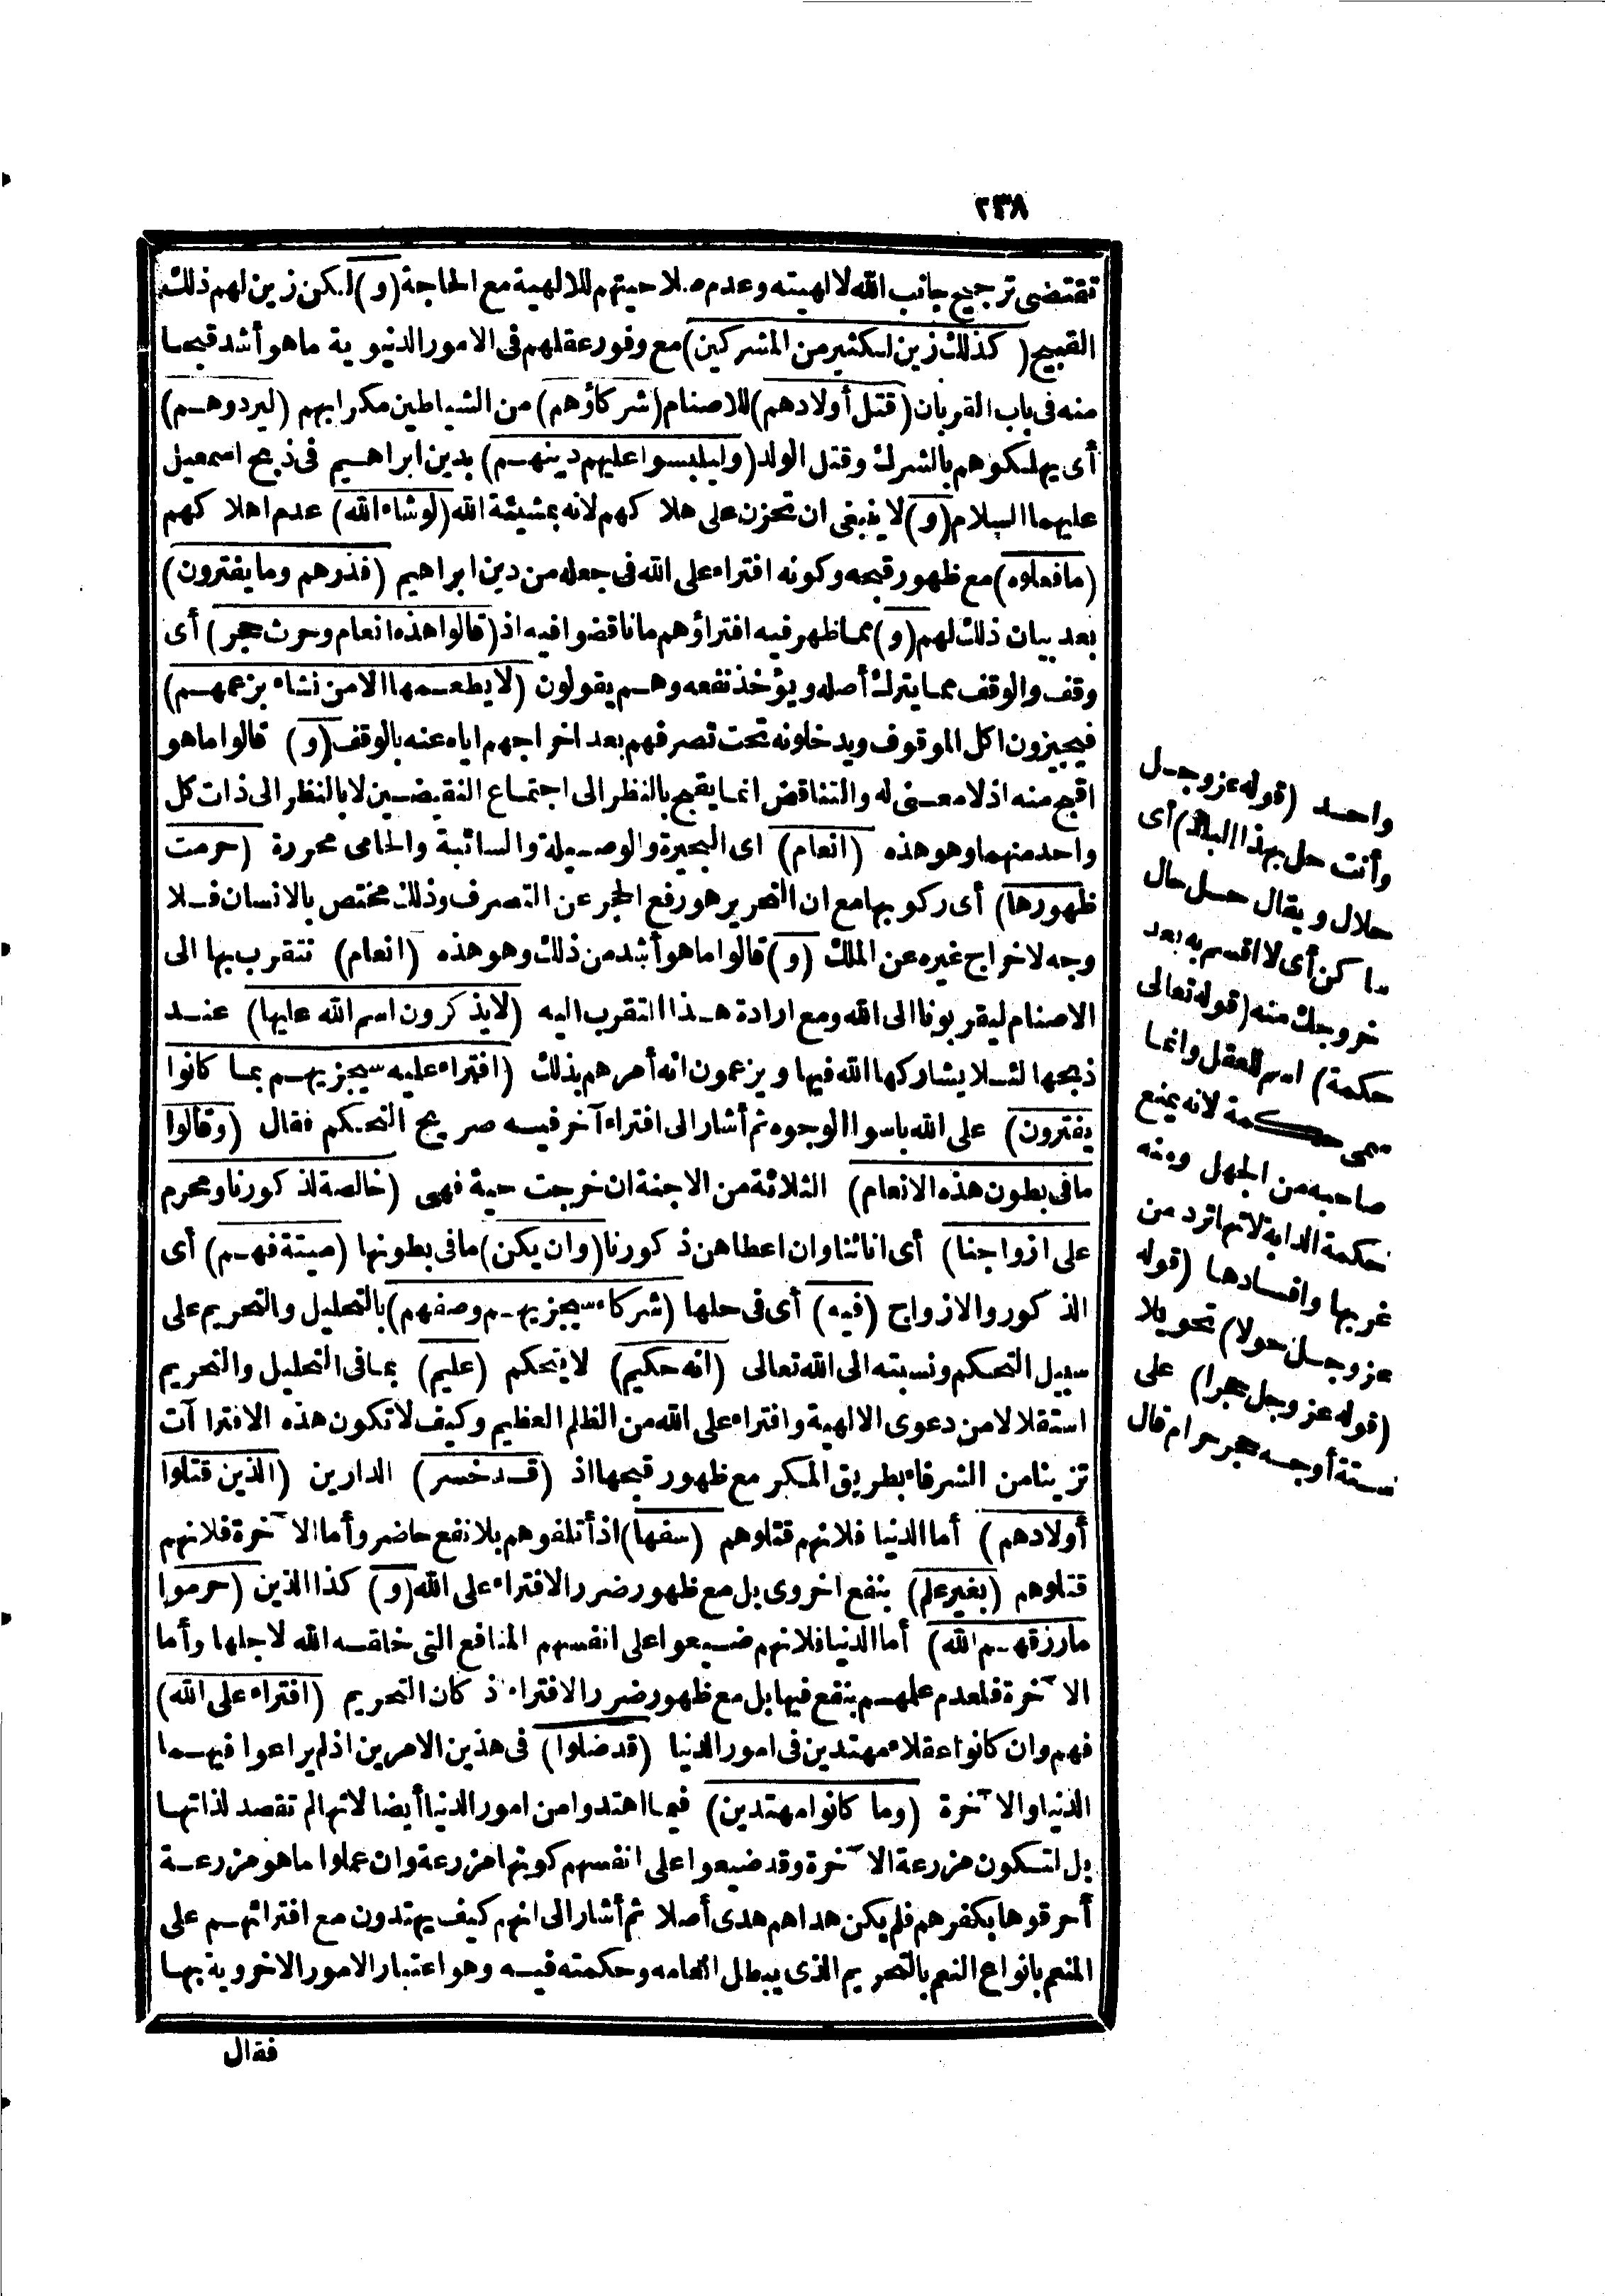 ٢٣٨
تقتضى ترجيح جانب الله لالهيته وعدم صلاحيتهم للالهية مع الحاجة (و) لكن زين لهم ذلك
القبيح (كذلك زين لكثير من المشركين) مع وفور عقلهم فى الامور الدنيوية ماهو أشد قبحا
منه فى باب القربان (قتل أولادهم) للاصنام (شركاؤهم) من الشياطين مكرا بهم (ليردوهم)
أى يهلكوهم بالشرك وقتل الولد (وليلبسوا عليهم دينهم) بدين ابراهيم فى ذبح اسمعيل
عليهما السلام (و) لا ينبغى ان تحزن على هلاكهم لانه بمشيئة الله (لوشاء الله) عدم اهلاكهم
(مافعلوه) مع ظهور قبحه وكونه افتراء على الله فى جعله من دين ابراهيم (فذرهم ومايفترون)
بعد بيان ذلك لهم (و) مماظهر فيه افتراؤهم ماناقضوا فيه اذ (قالوا هذه انعام وحرث حجر) أى
وقف والوقف ممايترك أصله ويؤخذ نفعه وهم يقولون (لايطعمها الامن نشاء بزعمهم)
فيجيزون اكل الموقوف ويدخلونه تحت تصرفهم بعد اخراجهم اياه عنه بالوقف (و) قالوا ماهو
اقبح منه اذ لامعنى له والتناقض انما يقبح بالنظر الى اجتماع النقيضين لا بالنظر الى ذات كل
واحد منهما وهو هذه (انعام) اى البحيرة والوصيلة والسائبة والحامى محررة (حرمت
ظهورها) أى ركوبها مع ان التحرير هو رفع الحجر عن التصرف وذلك مختص بالانسان فلا
وجه لاخراج غيره عن الملك (و) قالوا ماهو أشد من ذلك وهو هذه (انعام) نتقرب بها الى
الاصنام ليقربونا الى الله ومع ارادة هذا التقرب اليه (لايذكرون اسم الله عليها) عند
ذبحها لئلا يشاركها الله فيها ويزعمون انه أمرهم بذلك (افتراء عليه سيجزيهم بما كانوا
يفترون) على الله باسوا الوجوه ثم أشار الى افتراء آخر فيه صريح التحكم فقال (وقالوا
مافى بطون هذه الانعام) الثلاثة من الاجنة ان خرجت حية فهى (خالصة لذكورنا ومحرم
على ازواجنا) أى اناثنا وان اعطاهن ذكورنا (وان يكن) مافى بطونها (ميتة فهم) أى
الذكور والازواج (فيه) أى فى حلها (شركاء سيجزيهم وصفهم) بالتحليل والتحريم على
سبيل التحكم ونسبته الى الله تعالى (انه حكيم) لايتحكم (عليم) بمافى التحليل والتحريم
استقلالا من دعوى الالهية وافتراء على الله من الظلم العظيم وكيف لا تكون هذه الافتراآت
تزيينا من الشرفاء بطريق المكر مع ظهور قبحها اذ (قد خسر) الدارين (الذين قتلوا
أولادهم) أما الدنيا فلانهم قتلوهم (سفها) اذ أتلفوهم بلا نفع حاضر وأما الآخرة فلانهم
قتلوهم (بغير علم) بنفع اخروى بل مع ظهور ضرر الافتراء على الله (و) كذا الذين (حرموا
مارزقهم الله) أما الدنيا فلانهم ضيعوا على انفسهم المنافع التى خلقه الله لاجلها وأما
الآخرة فلعدم علمهم بنفع فيها بل مع ظهور ضرر الافتراء اذ كان التحريم (افتراء على الله)
فهم وان كانوا عقلاء مهتدين فى امور الدنيا (قد ضلوا) فى هذين الامرين اذ لم يراعوا فيهما
الدنيا والآخرة (وما كانوا مهتدين) فيما اهتدوا من امور الدنيا أيضا لانها لم تقصد لذاتها
بل لتكون مزرعة الآخرة وقد ضيعوا على انفسهم كونها مزرعة وان عملوا ماهو مزرعة
أحرقوها بكفرهم فلم يكن هداهم هدى أصلا ثم أشار الى انهم كيف يهتدون مع افترائهم على
المنعم بانواع النعم بالتحريم الذى يبطل انعامه وحكمته فيه وهو اعتبار الامور الاخروية بها
فقال
واحد (قوله عز وجل
وأنت حل بهذا البلد) أى
حلال ويقال حل حال
ساكن أى لا اقسم به بعد
خروجك منه (قوله تعالى
حكمة) اسم للعقل وانما
سمى حكمة لانه يمنع
صاحبه من الجهل ومنه
حكمة الدابة لانها ترد من
غربها وافسادها (قوله
عز وجل حولا) تحويلا
(قوله عز وجل حجرا) على
ستة أوجه حجر حرام قال